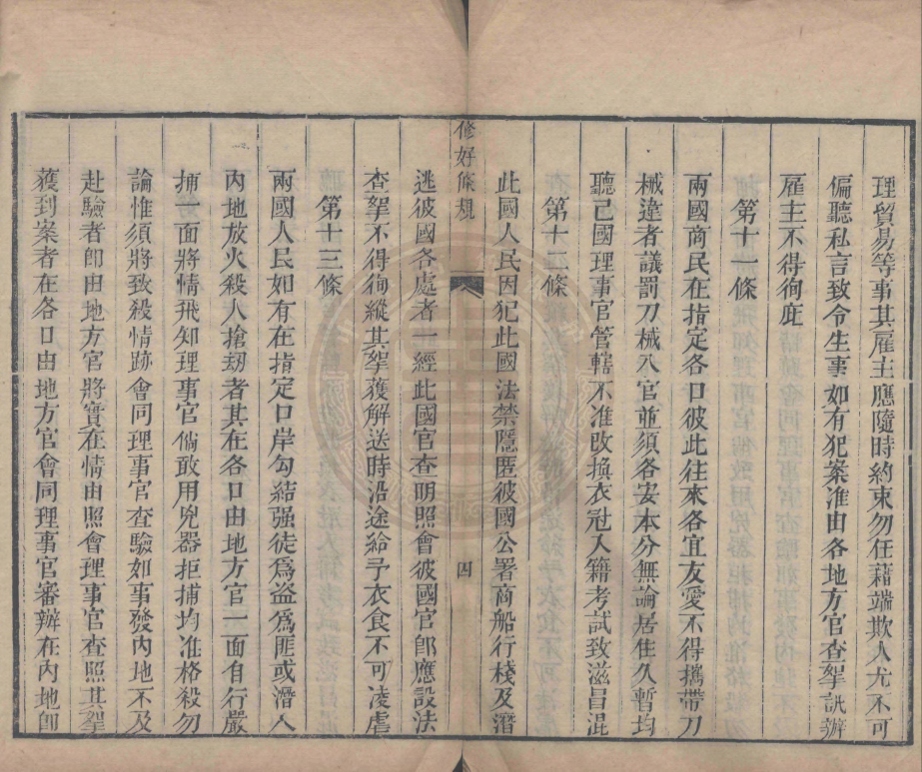 理貿易等事其雇主應隨時約束勿任藉端欺人尤不可
偏聽私言致令生事如有犯案准由各地方官查拏訊辦
雇主不得徇庇
第十一條
兩國商民在指定各口彼此往來各宜友愛不得攜帶刀
械違者議罰刀械入官並須各安本分無論居住久暫均
聽己國理事官管轄不准改換衣冠入籍考試致滋冒混
第十二條
此國人民因犯此國法禁隱匿彼國公署商船行棧及潛
修好條規
四
逃彼國各處者一經此國官查明照會彼國官卽應設法
查拏不得徇縱其拏獲解送時沿途給予衣食不可凌虐
第十三條
兩國人民如有在指定口岸勾結强徒爲盜爲匪或潛入
內地放火殺人搶刼者其在各口由地方官一面自行嚴
捕一面將情飛知理事官倘敢用兇器拒捕均准格殺勿
論惟須將致殺情跡會同理事官查驗如事發內地不及
赴驗者卽由地方官將實在情由照會理事官查照其拏
獲到案者在各口由地方官會同理事官審辦在內地卽